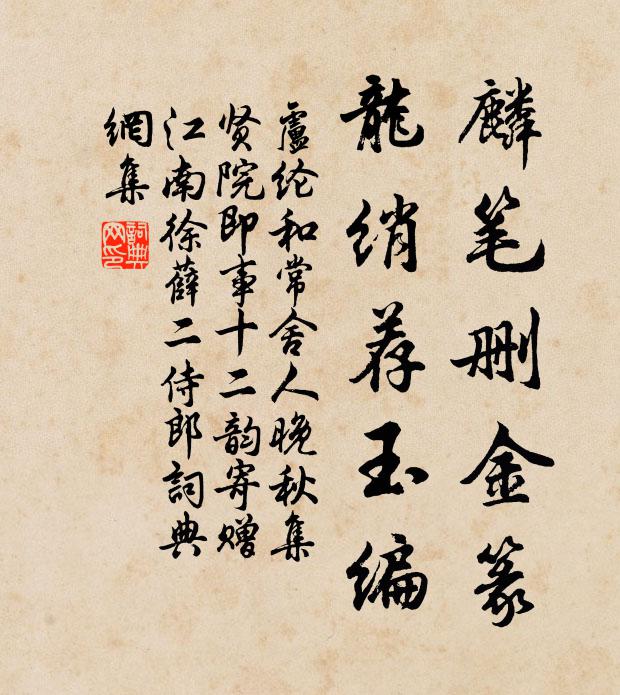 麟笔删金篆
龍绡荐玉编
盧纶和常舍人晚秋集
贤院即事十二韵寄赠
江南徐薛二侍郎詞典
網集
詞典
网印